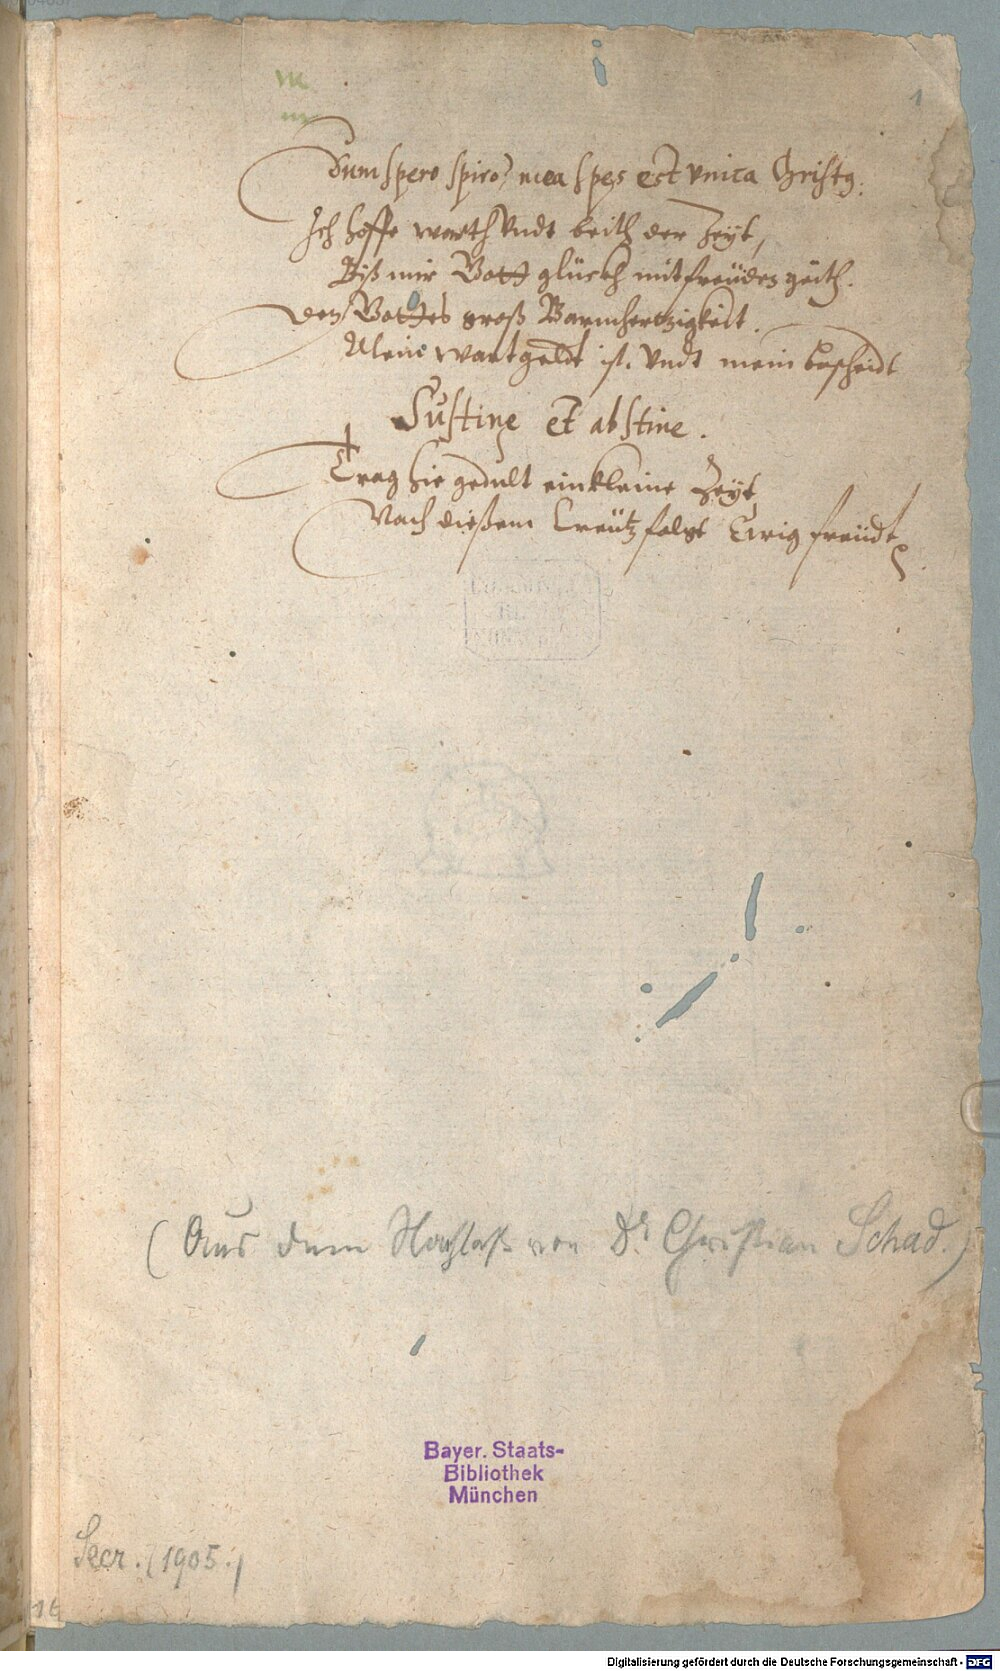 1
Dum spero spiro, mea spes est unica Christus.
Ich hoffe warth Undt beith der Zeyt,
Biß mir Gott glückh mit freüden geith.
Den Gottes groß Barmhertzigkeit.
Mein wartgeldt ist. Undt mein bescheidt
Sustine et abstine.
Trag hie gedult ein kleine Zeyt
Nach dießem Creütz folgt Ewig freüdt
(Aus dem Nachlaß von Dr. Christian Schad.)
Bayer. Staats-
Bibliothek
München
Secr. (1905.)
Digitalisierung gefördert durch die Deutsche Forschungsgemeinschaft - DFG